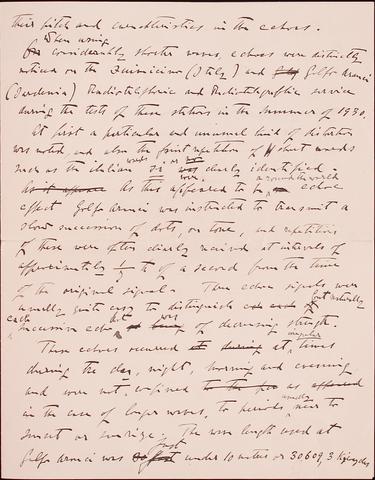 their pitch and characteristics in the echoes.
When using
considerably shorter waves, echoes were distinctly
noticed on the Fiumicino (Italy) and Golfo Aranci
(Sardinia) Radiotelephonic and Radiotelegraphic service
during the tests of these stations in the summer of 1930.
At first a particular and unusual kind of distortion
was noted and also the faint repetition of short words
such as the italian words si or no were clearly identified.
As this appeared to be a round the world echo
effect Golfo Aranci was instructed to transmit a
slow succession of dots, on tone, and repetitions
of these were often clearly received at intervals of
approximately 1/7 th of a second from the time
of the original signal. These echo signals were
usually quite easy to distinguish but naturally
each successive echo was of decreasing strength.
These echoes occurred at irregular times
during the day, night, morning and evening
and were not confined as
in the case of longer waves, to periods near to
sunset or sunrise. The wave length used at
Golfo Aranci was just under 10 meters or 30609,3 kilocycles